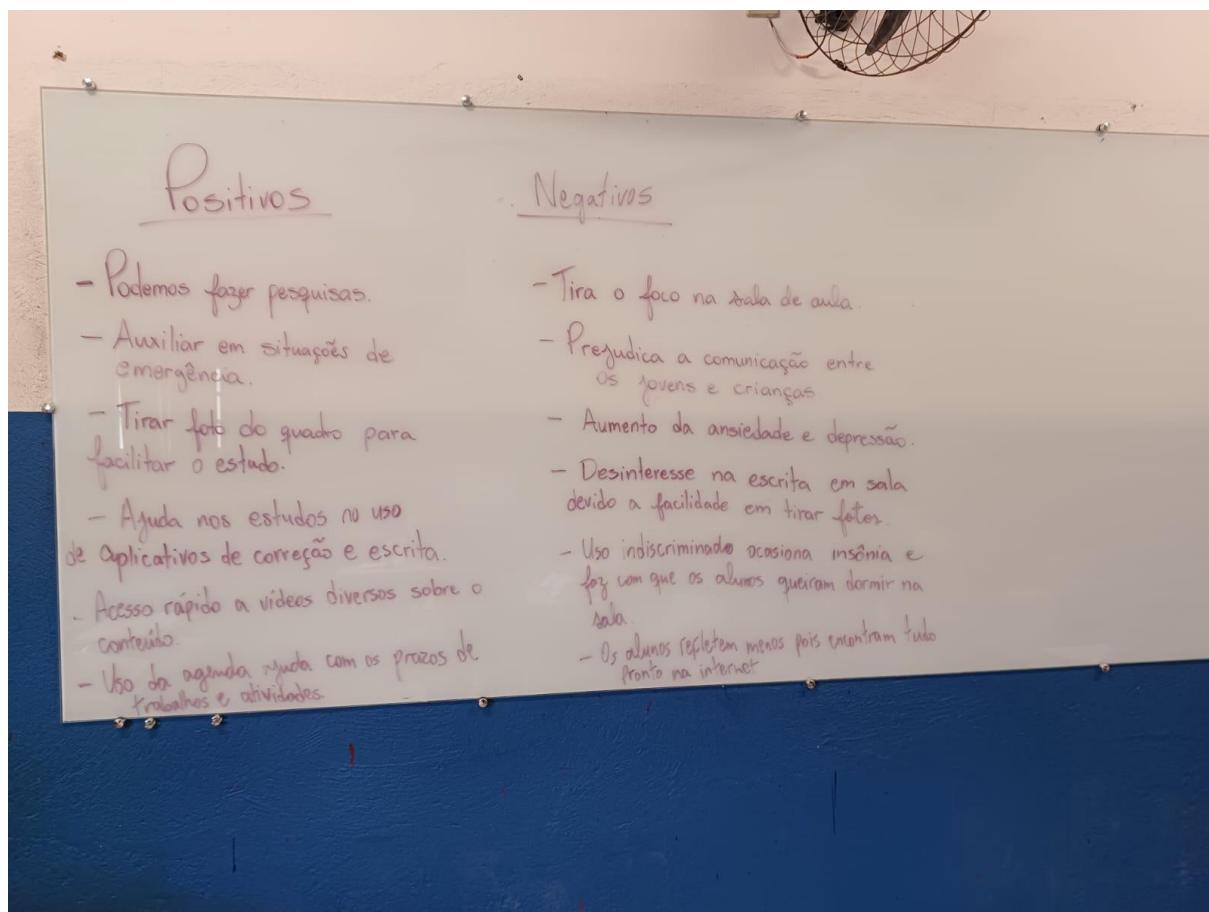 Positivos
- Podemos fazer pesquisas.
- Auxiliar em situações de
emergência.
- Tirar foto do quadro para
facilitar o estudo.
- Ajuda nos estudos no uso
de aplicativos de correção e escrita.
- Acesso rápido a vídeos diversos sobre o
conteúdo.
- Uso da agenda ajuda com os prazos de
trabalhos e atividades.
Negativos
- Tira o foco na sala de aula.
- Prejudica a comunicação entre
os jovens e crianças
- Aumento da ansiedade e depressão.
- Desinteresse na escrita em sala
devido a facilidade em tirar fotos.
- Uso indiscriminado ocasiona insônia e
faz com que os alunos queiram dormir na
sala.
- Os alunos refletem menos pois encontram tudo
pronto na internet